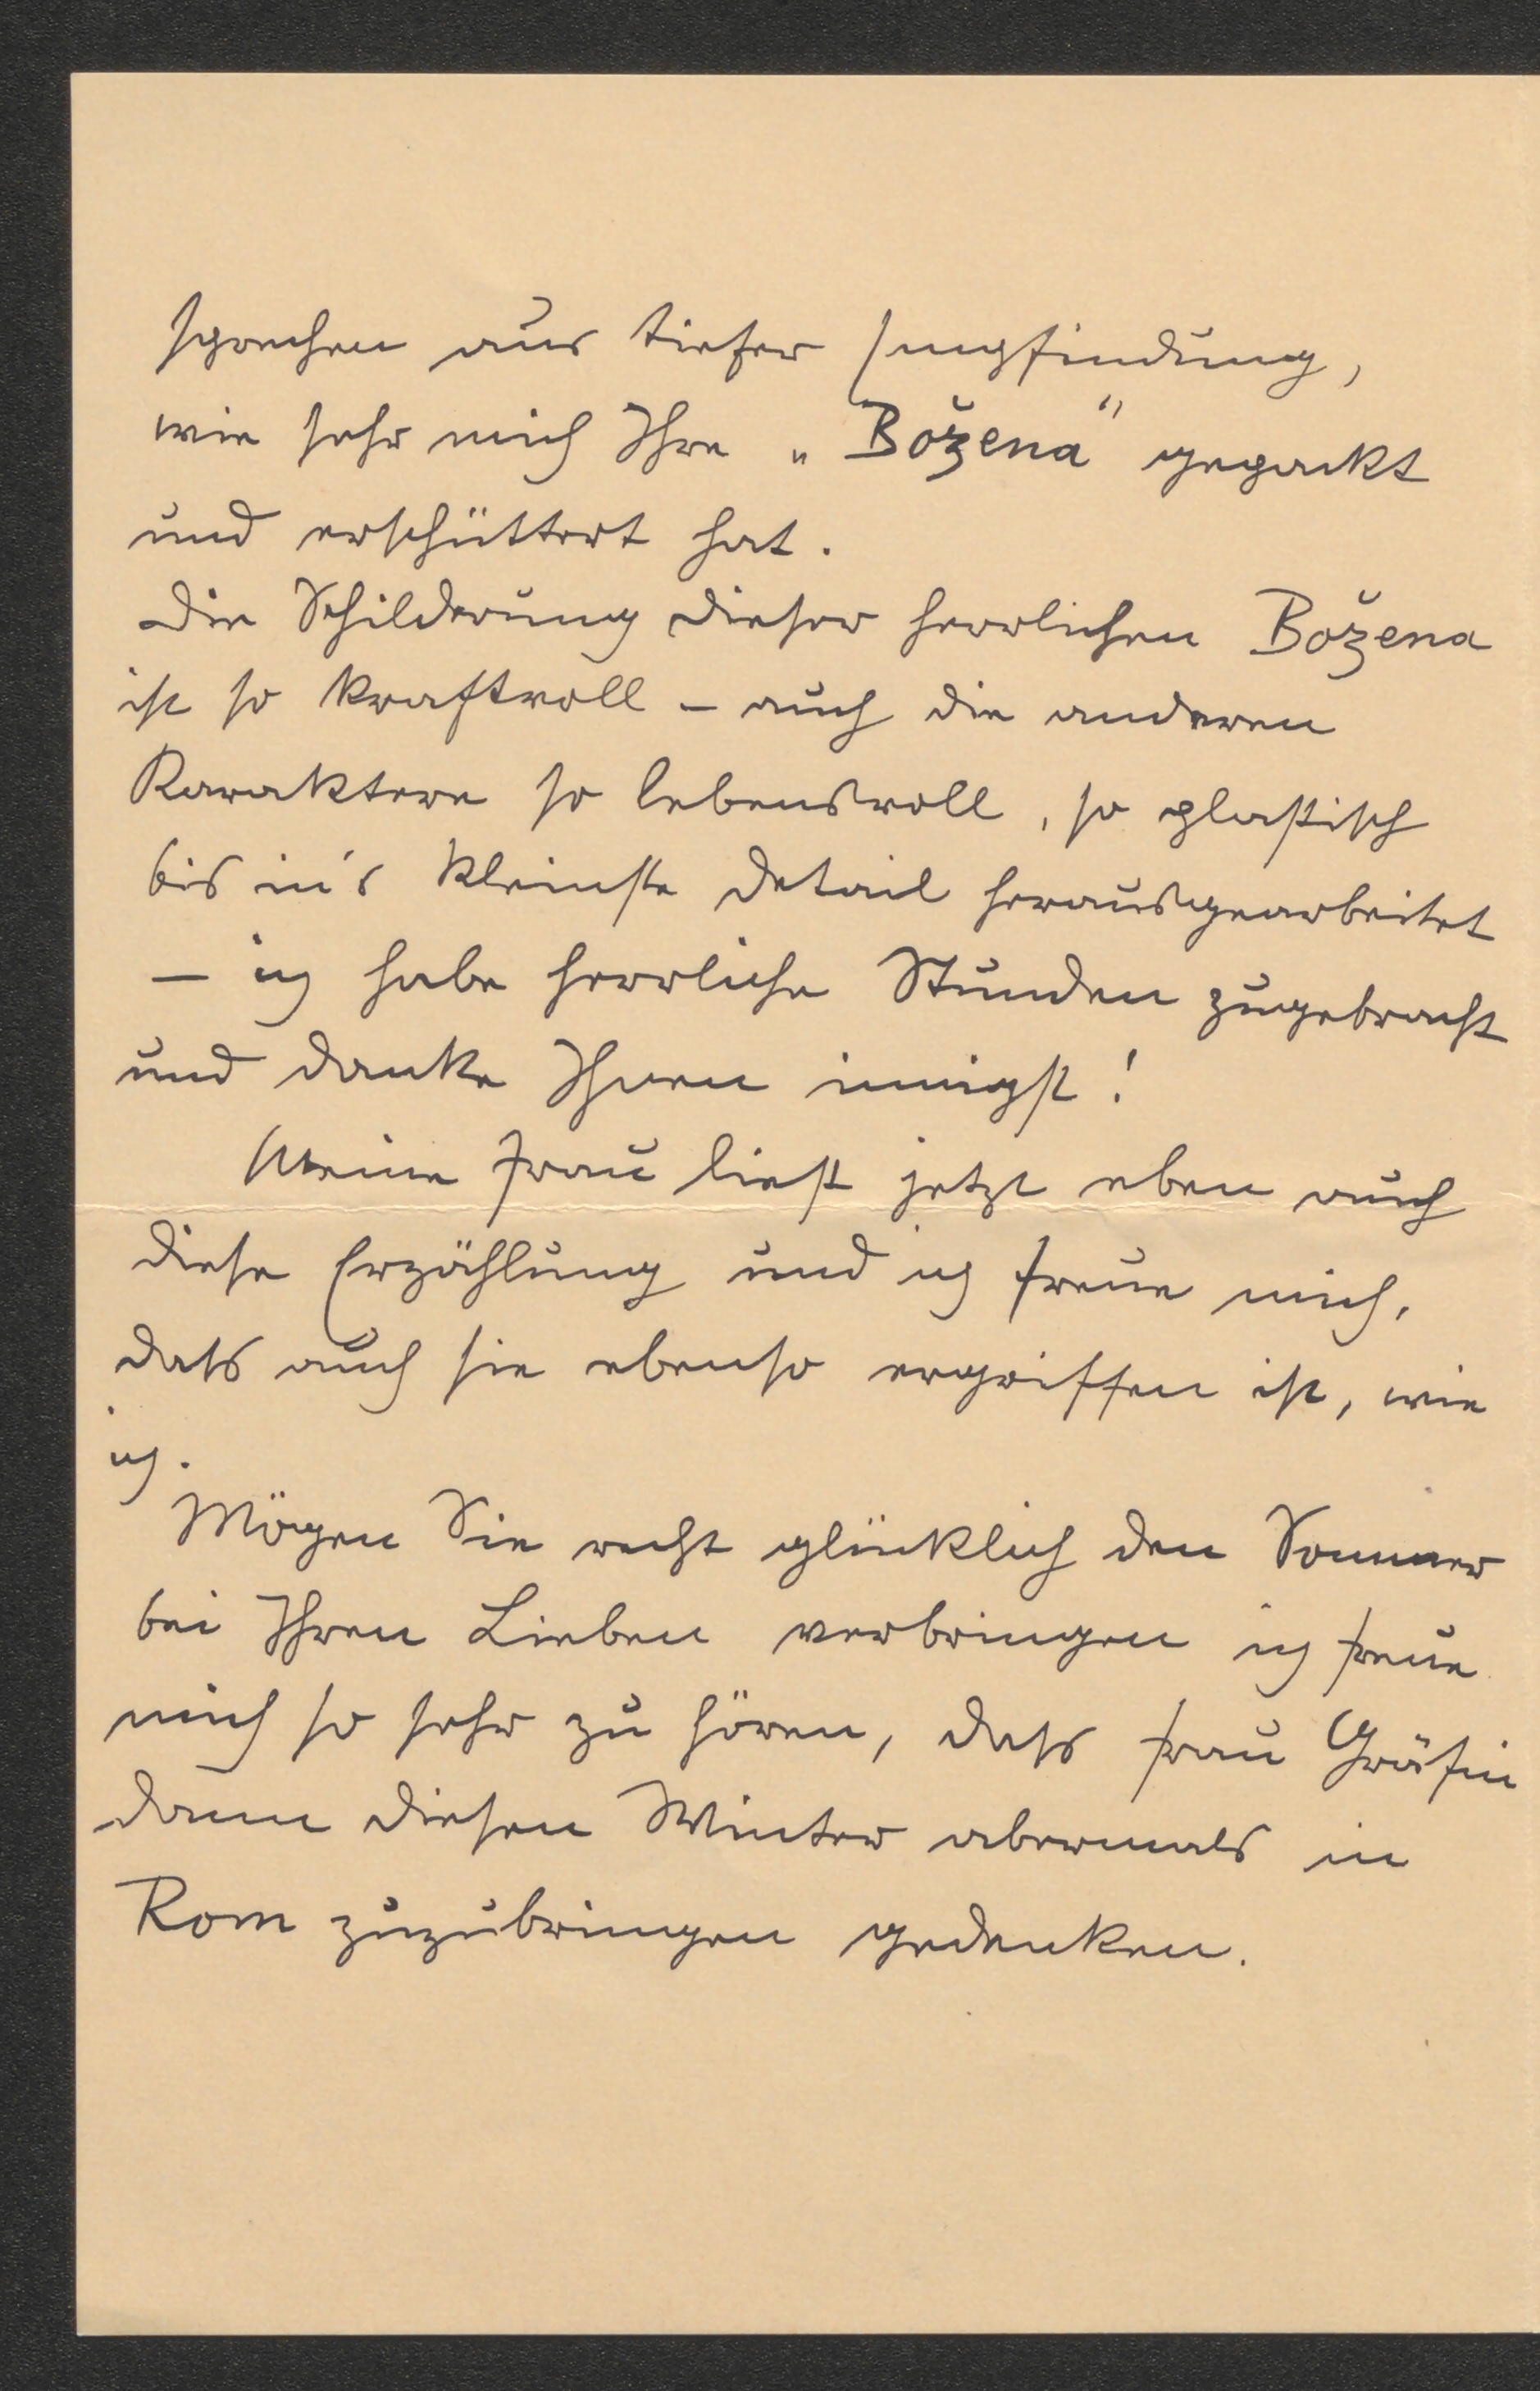 sprechen aus tiefer Empfindung,
wie sehr mich Ihre „Božena“ gepackt
und erschüttert hat.
Die Schilderung dieser herrlichen Božena
ist so kraftvoll – auch die anderen
Karaktere so lebensvoll, so plastisch
bis in's kleinste Detail herausgearbeitet
– ich habe herrliche Stunden zugebracht
und danke Ihnen innigst!
Meine Frau liest jetzt eben auch
diese Erzählung und ich freue mich,
dass auch sie ebenso ergriffen ist, wie
ich.
Mögen Sie recht glücklich den Sommer
bei Ihren Lieben verbringen ich freue
mich so sehr zu hören, dass Frau Gräfin
dann diesen Winter abermals in
Rom zuzubringen gedenken.